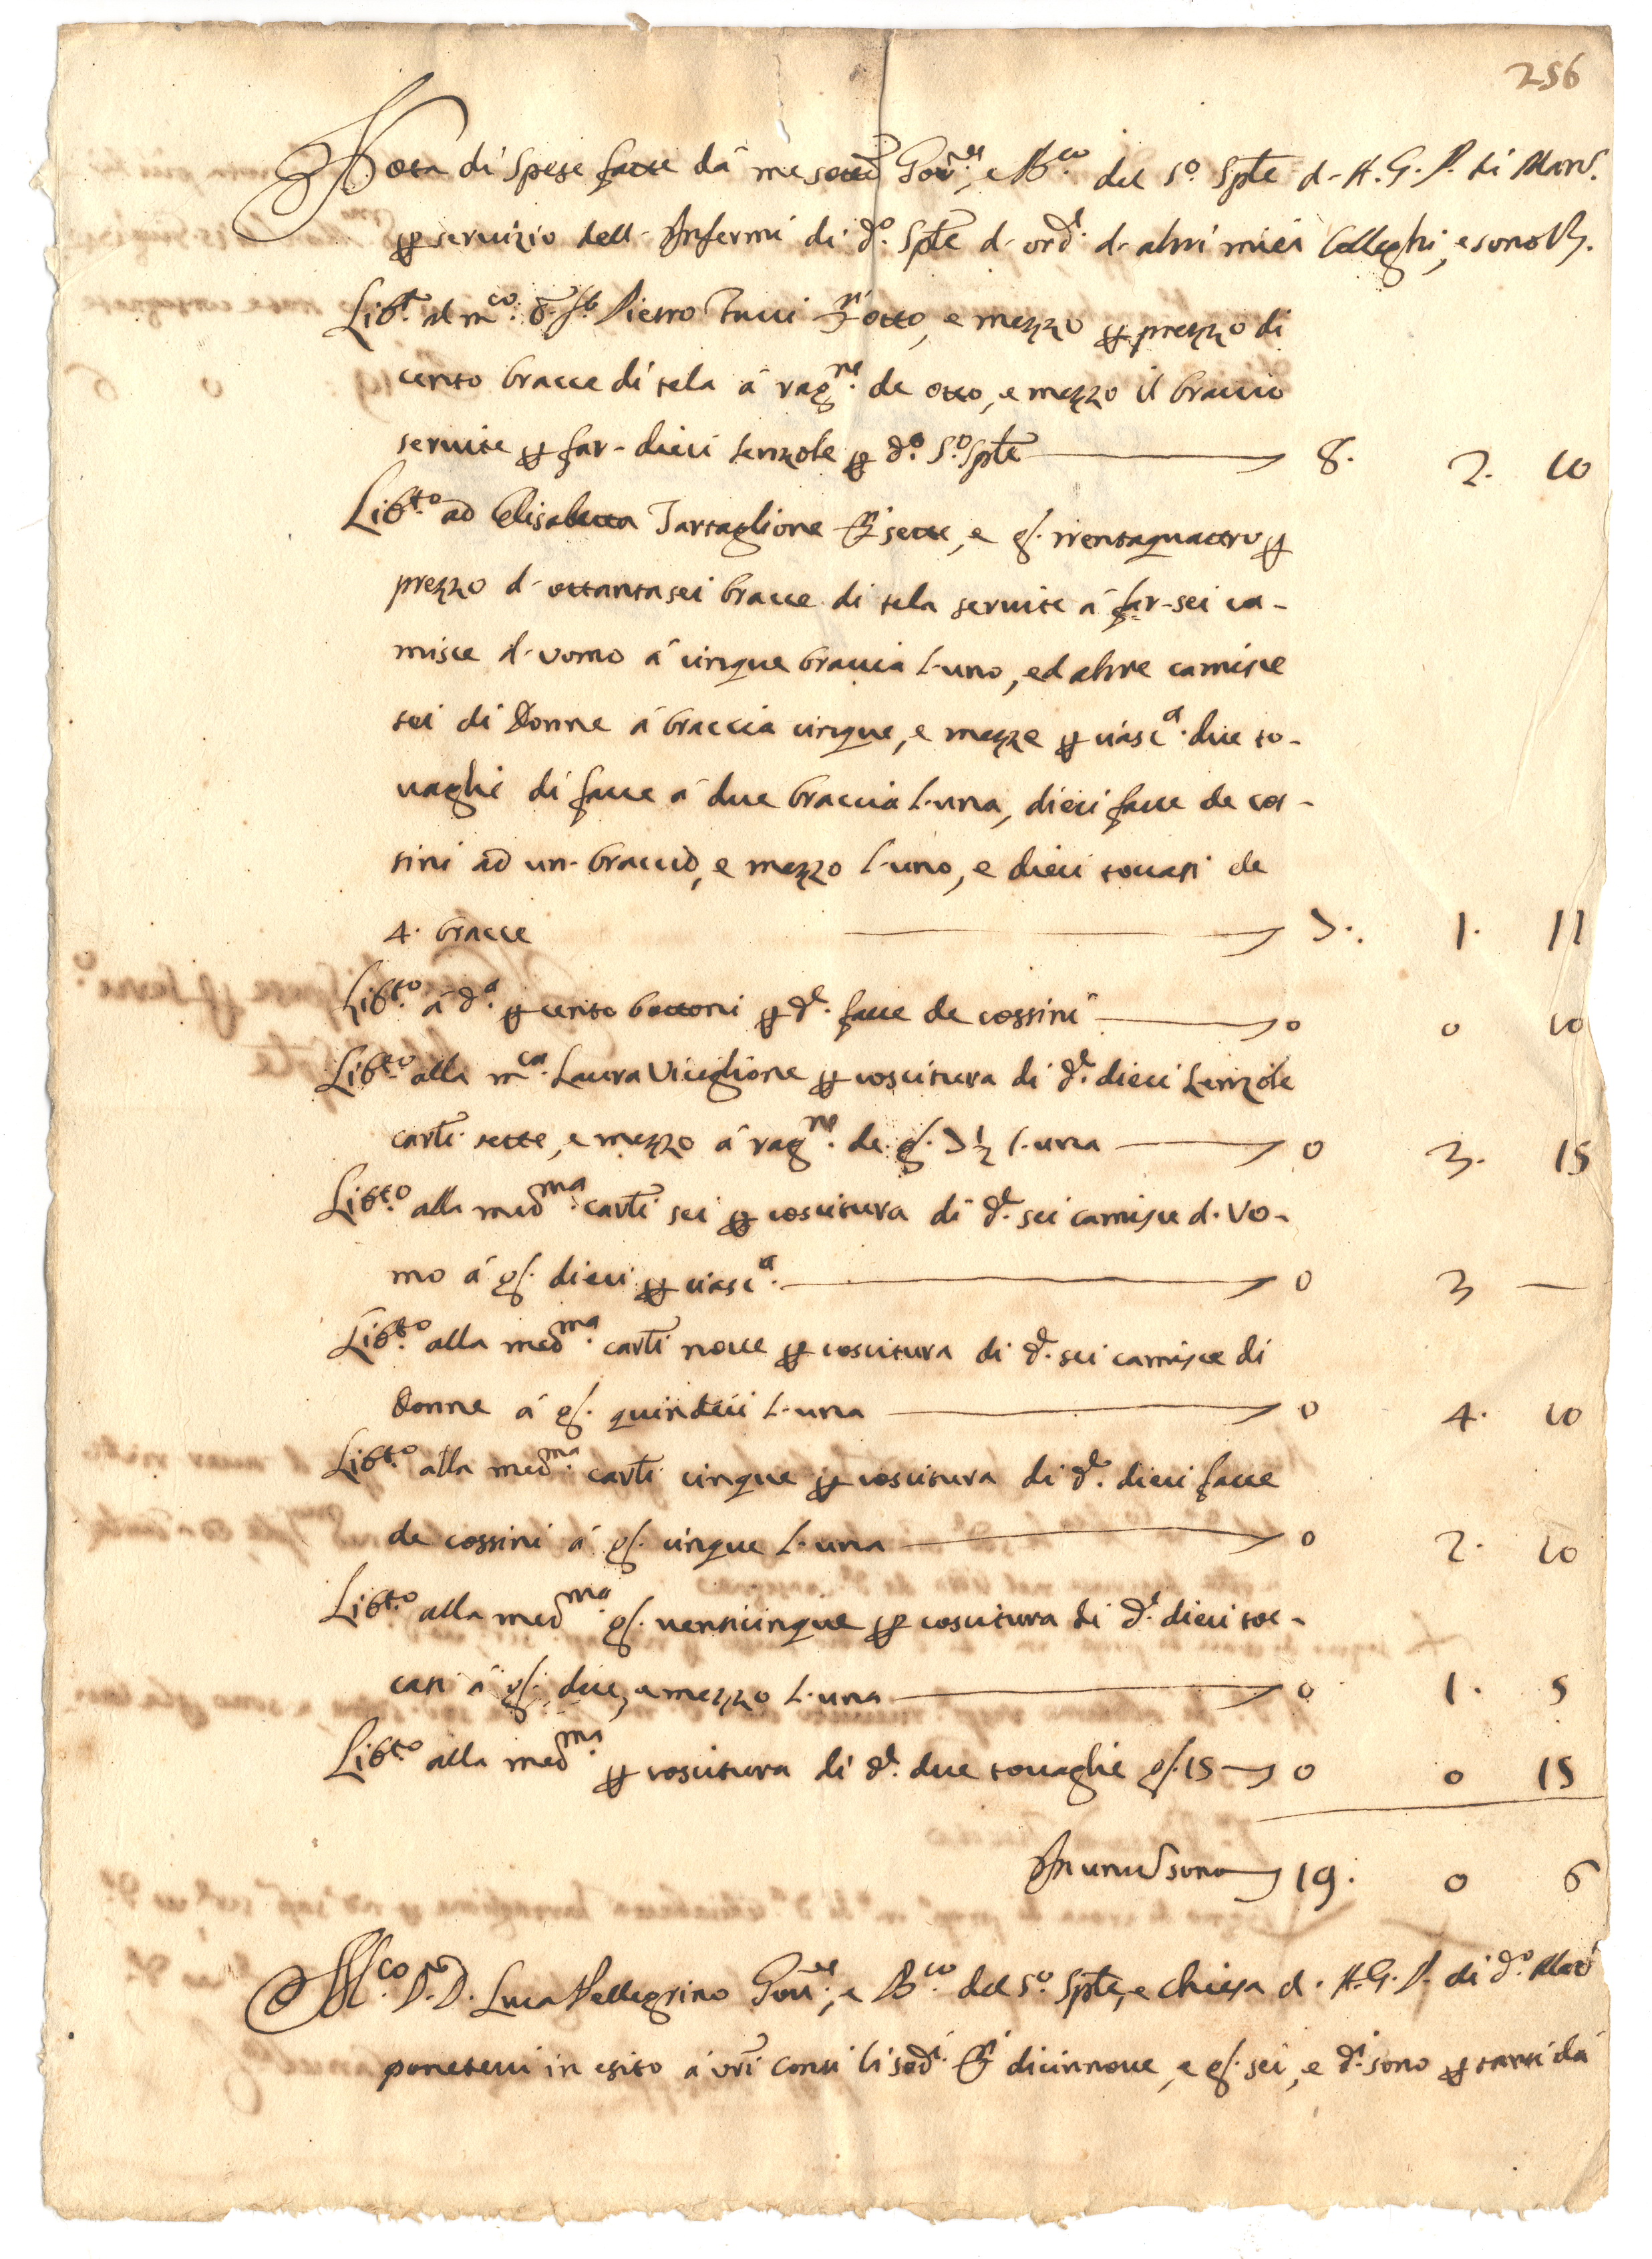 256
Nota di Spese fatte dà me sottō Gov.re, e B.co del S.o Spīe d. A. G. P. di Mard.
ꝑ servizio dell. Infermi di d.o Spīe d. ord.e d. altri miei Colleghi, e sono
Lib.to al m.co Pietro Tucci otto, e mezzo ꝑ prezzo di
cento bracce di tela à rag.ne de otto, e mezzo il braccio
servite ꝑ far. dieci lenzole ꝑ d.o S.o Spīe 8. 2. 10
Lib.to ad Elisabetta Tartaglione sette, e g. trentaquattro ꝑ
prezzo d. ottantasei bracce di tela servite à far. sei ca-
misce d. uomo à cinque braccia l. uno, ed altre camisce
sei di Donne à braccia cinque, e mezze ꝑ ciasc.a due to-
vaghi di facce à due braccia l. una, dieci facce de cos-
sini ad un. braccio, e mezzo l. uno, e dieci toccati de
4. bracce 7. 1. 11
Lib.to à d.a ꝑ cento bottoni ꝑ d.e facce de cossini 0 0 10
Lib.to alla m.ca Laura Viceglione ꝑ coscitura di d.e dieci Lenzole
carli sette, e mezzo à rag.ne de g. 7½ l. una 0 3. 15
Lib.to alla med.ma carli sei ꝑ coscitura di d.e sei camisce d. Vo-
mo à g. dieci ꝑ ciasc.a 0 3 —
Lib.to alla med.ma carli nove ꝑ coscitura di d.e sei camisce di
Donne à g. quindeci l. una 0 4. 10
Lib.to alla med.ma carli cinque ꝑ coscitura di d.e dieci facce
de cossini à g. cinque l. una 0 2. 10
Lib.to alla med.ma g. venticinque ꝑ coscitura di d.e dieci toc-
cati à g. due, e mezzo l. una 0 1. 5
Lib.to alla med.ma ꝑ coscitura di d.e due tovaglie g. 15 0 0 15
In unum sono 19. 0 6
M.co D.r D. Luca Pellegrino Gov.re, e B.co del S.o Spīe, e chiesa d. A. G. P. di d.o Mard
ponetevi in esito à vrī conti li sod.i dicinnove, e g. sei, e d.i sono ꝑ tanti dà